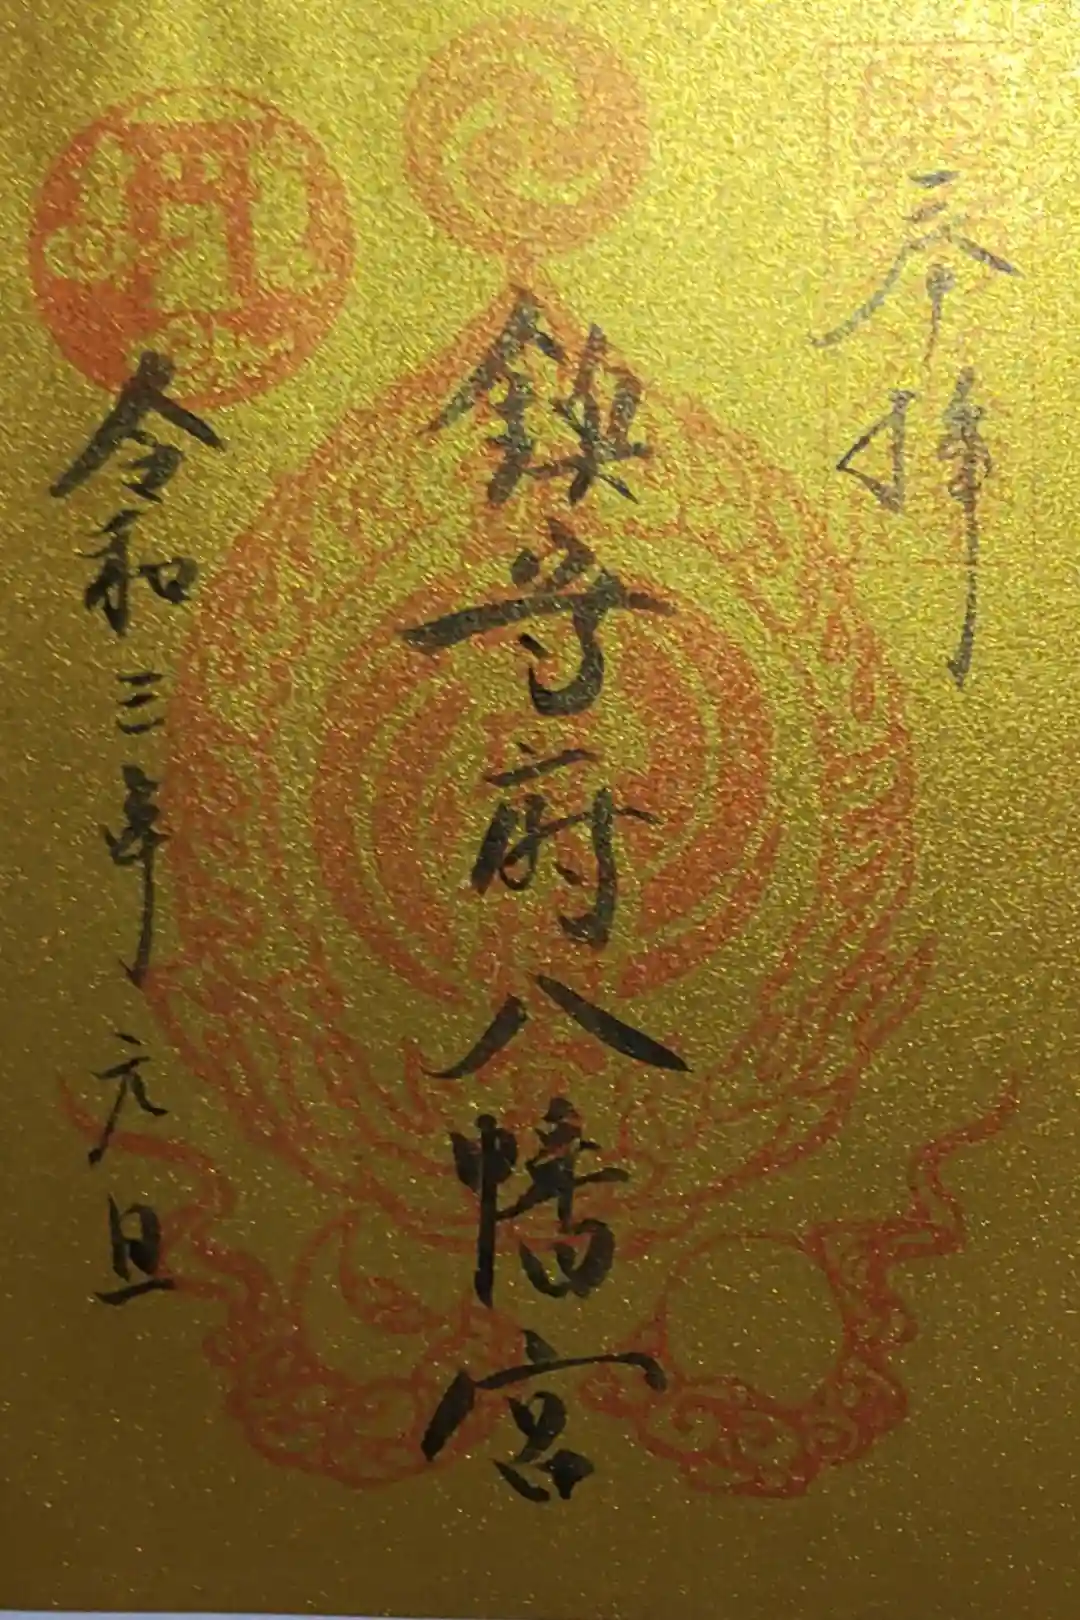 奉拝
鎮守府八幡宮
令和三年元旦